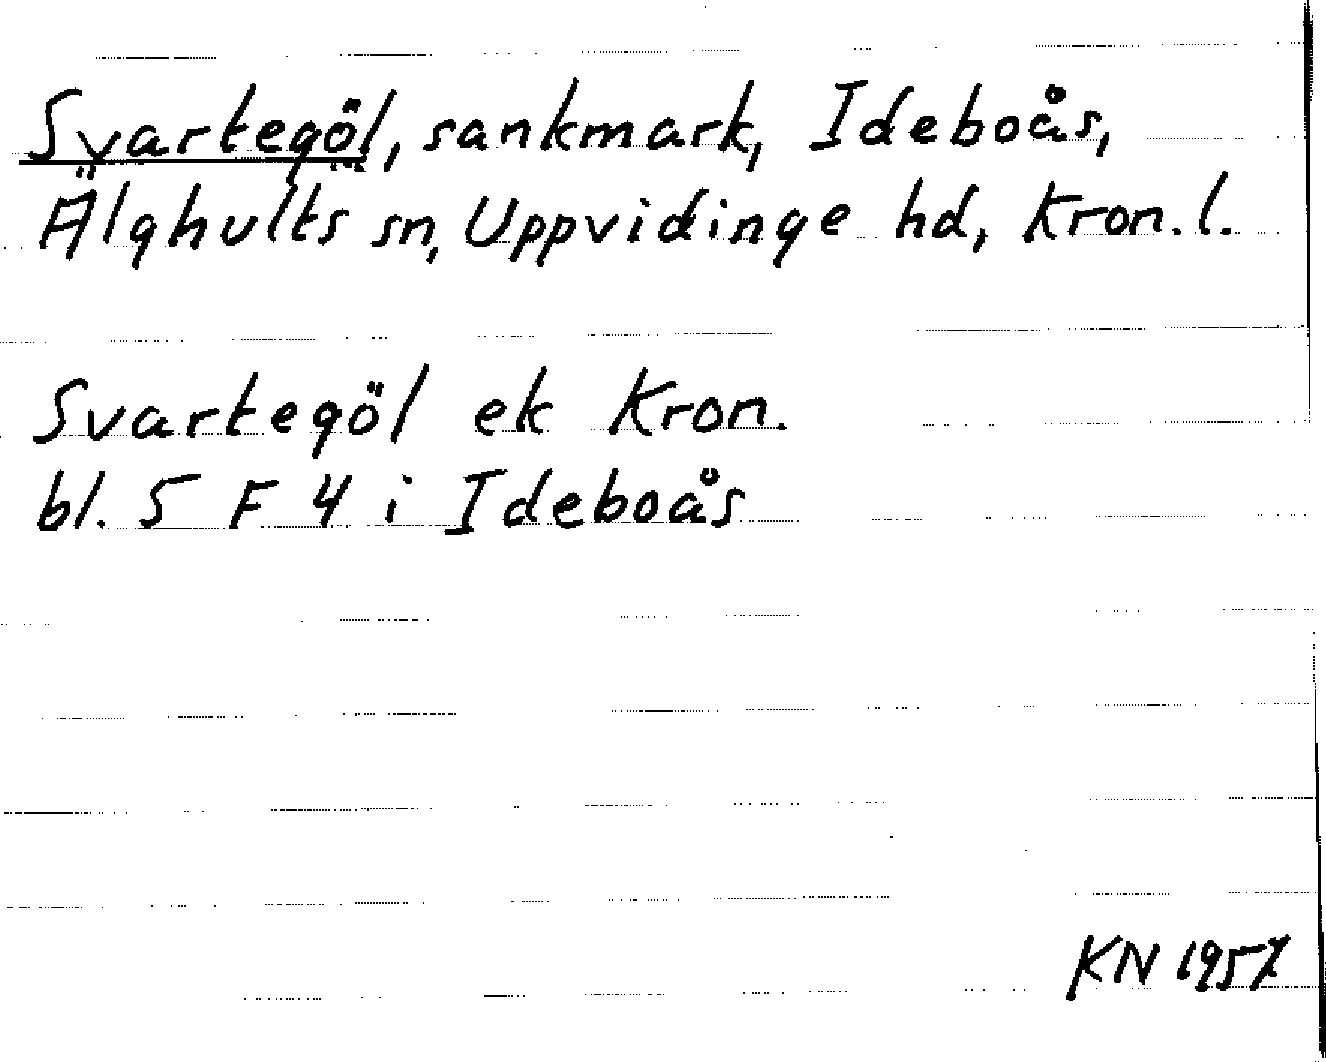 Svartegöl, sankmark, Ideboås,
Älghults sn, Uppvidinge hd, Kron. l.
Svartegöl ek Kron.
bl. 5 F 4 i Ideboås
KN 1957